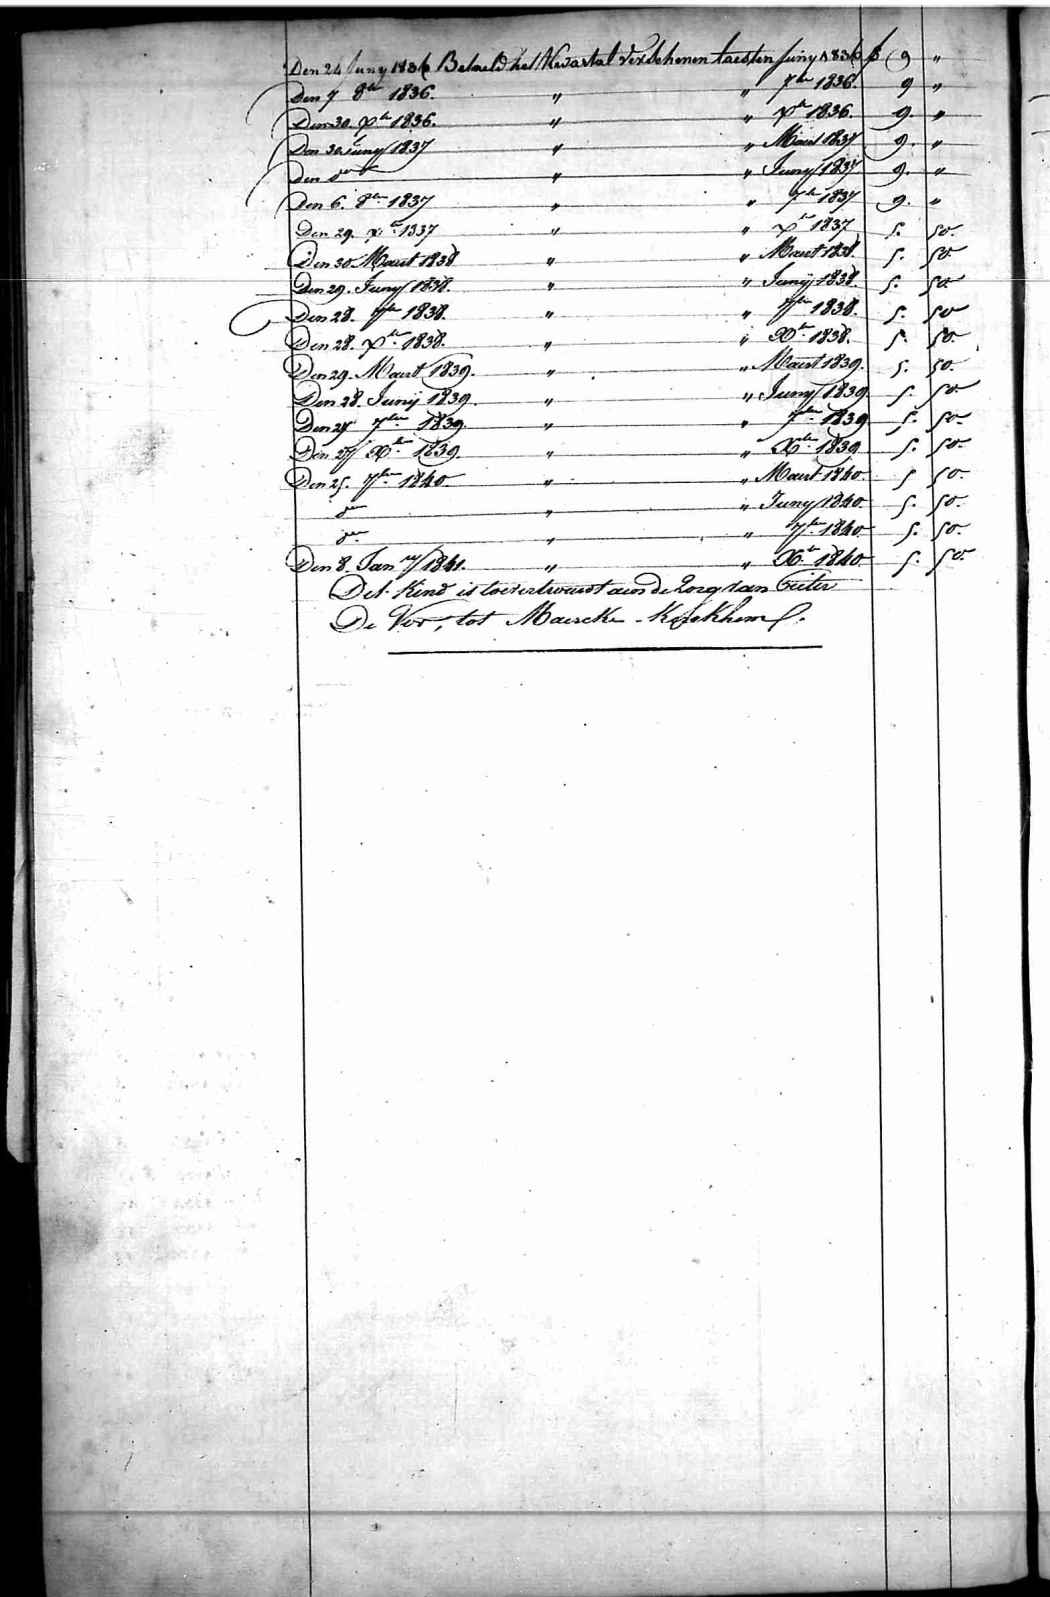 Den 24 Juny 1836 Betaeld het Kwartal verschenen laesten Juny 1836 f 9 "
Den 7 8bre 1836. " " 7bre 1836. 9 "
Den 30 Xbre 1836. " " Xbre 1836. 9. "
Den 30 Juny 1837 " " Maert 1837 9. "
den do " " Juny 1837 9. "
Den 6. 8bre 1837 " " 7bre 1837 9. "
Den 29. Xbre 1837 " " Xbre 1837 5. 50.
Den 30 Maert 1838 " " Maert 1838. 5. 50.
Den 29. Juny 1838. " " Juny 1838. 5. 50
Den 28. 7bre 1838. " " 7bre 1838. 5. 50
Den 28. Xbre 1838. " " Xbre 1838. 5. 50.
Den 29. Maert 1839. " " Maert 1839. 5. 50.
Den 28. Juny 1839. " " Juny 1839 5. 50.
Den 27 7bre 1839 " " 7bre 1839 5. 50.
Den 27 Xbre 1839. " " Xbre 1839 5. 50.
Den 25. 7bre 1840. " " Maert 1840. 5 50.
do " " Juny 1840. 5. 50.
do " " 7bre 1840. 5. 50.
Den 8. Janry 1841. " " Xbre 1840 5. 50.
Dit Kind is toevertrouwt aen de Zorg van Pieter
De Vos, tot Maercke-Kerkhem.